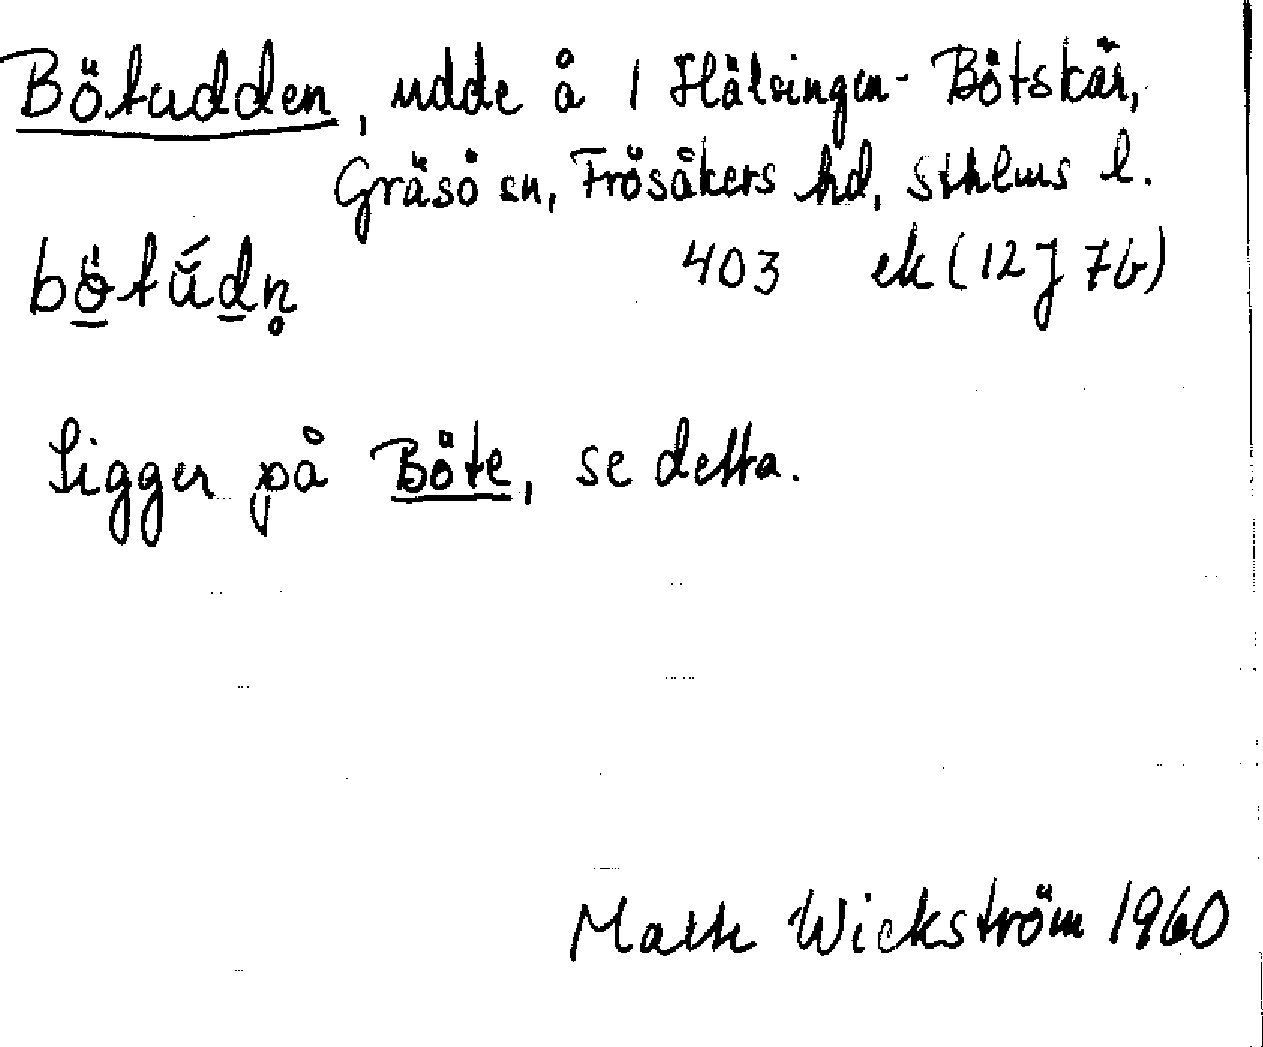 Bötudden, udde å 1 Hälsingen- Bötskär,
Gräsö sn, Frösåkers hd, Sthlms l.
bötúdn̥ 403 ek (12J 7b)
Ligger på Böte, se detta.
Wickström 1960